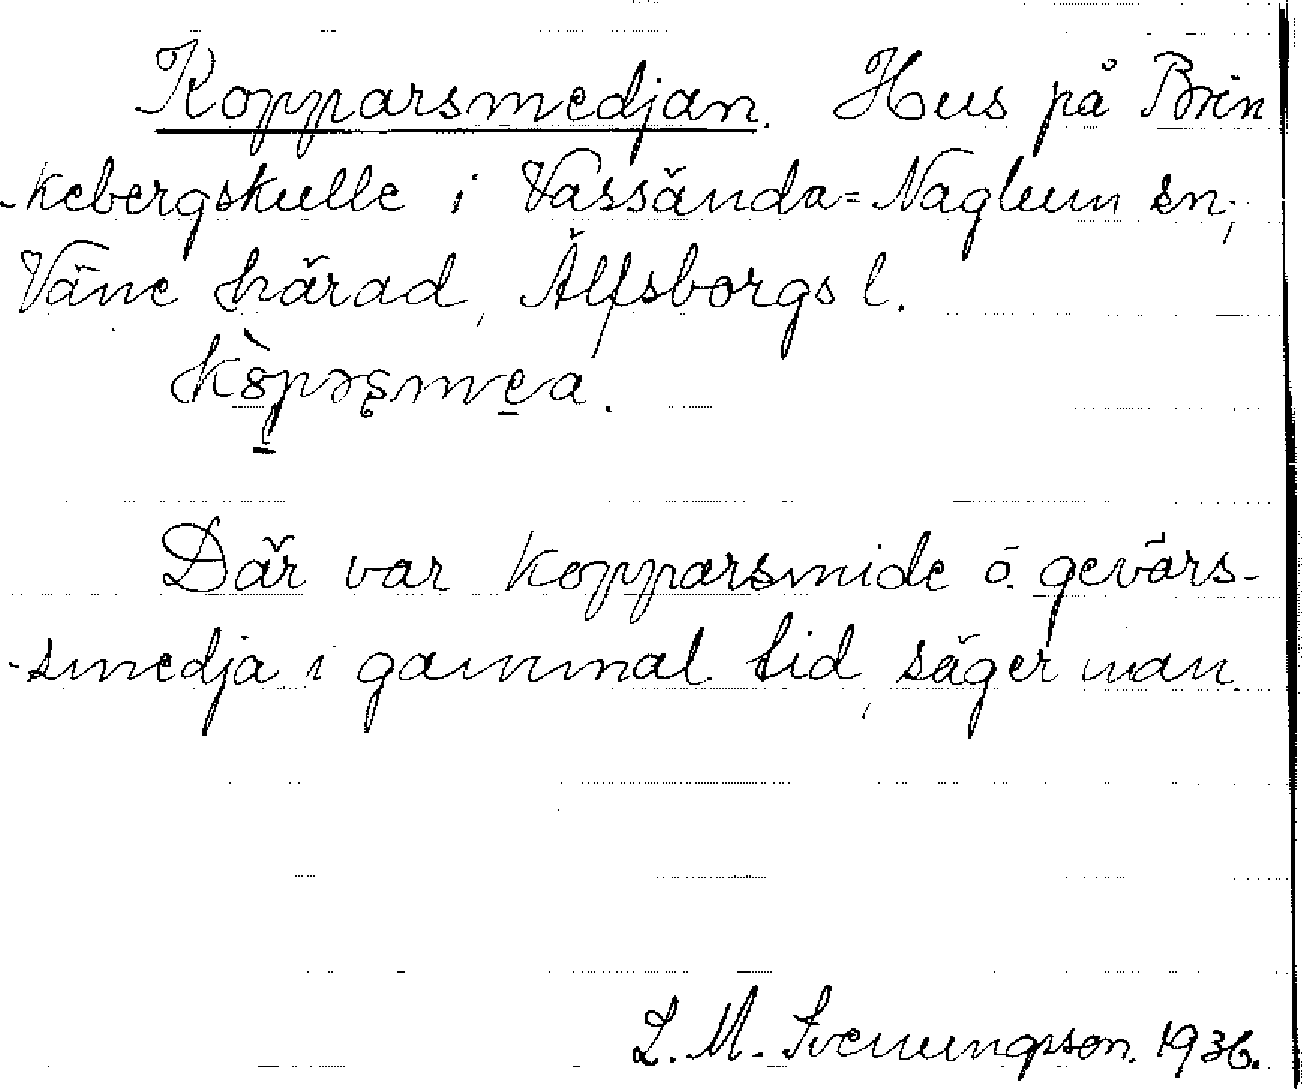 Kopparsmedjan. Hus på Brin
-kebergskulle i Vassända=Naglum sn,
Väne härad, Älfsborgs l.
Där var kopparsmide o. gevärs-
-smedja i gammal tid, säger man.
L. M. Svenungsson. 1936.